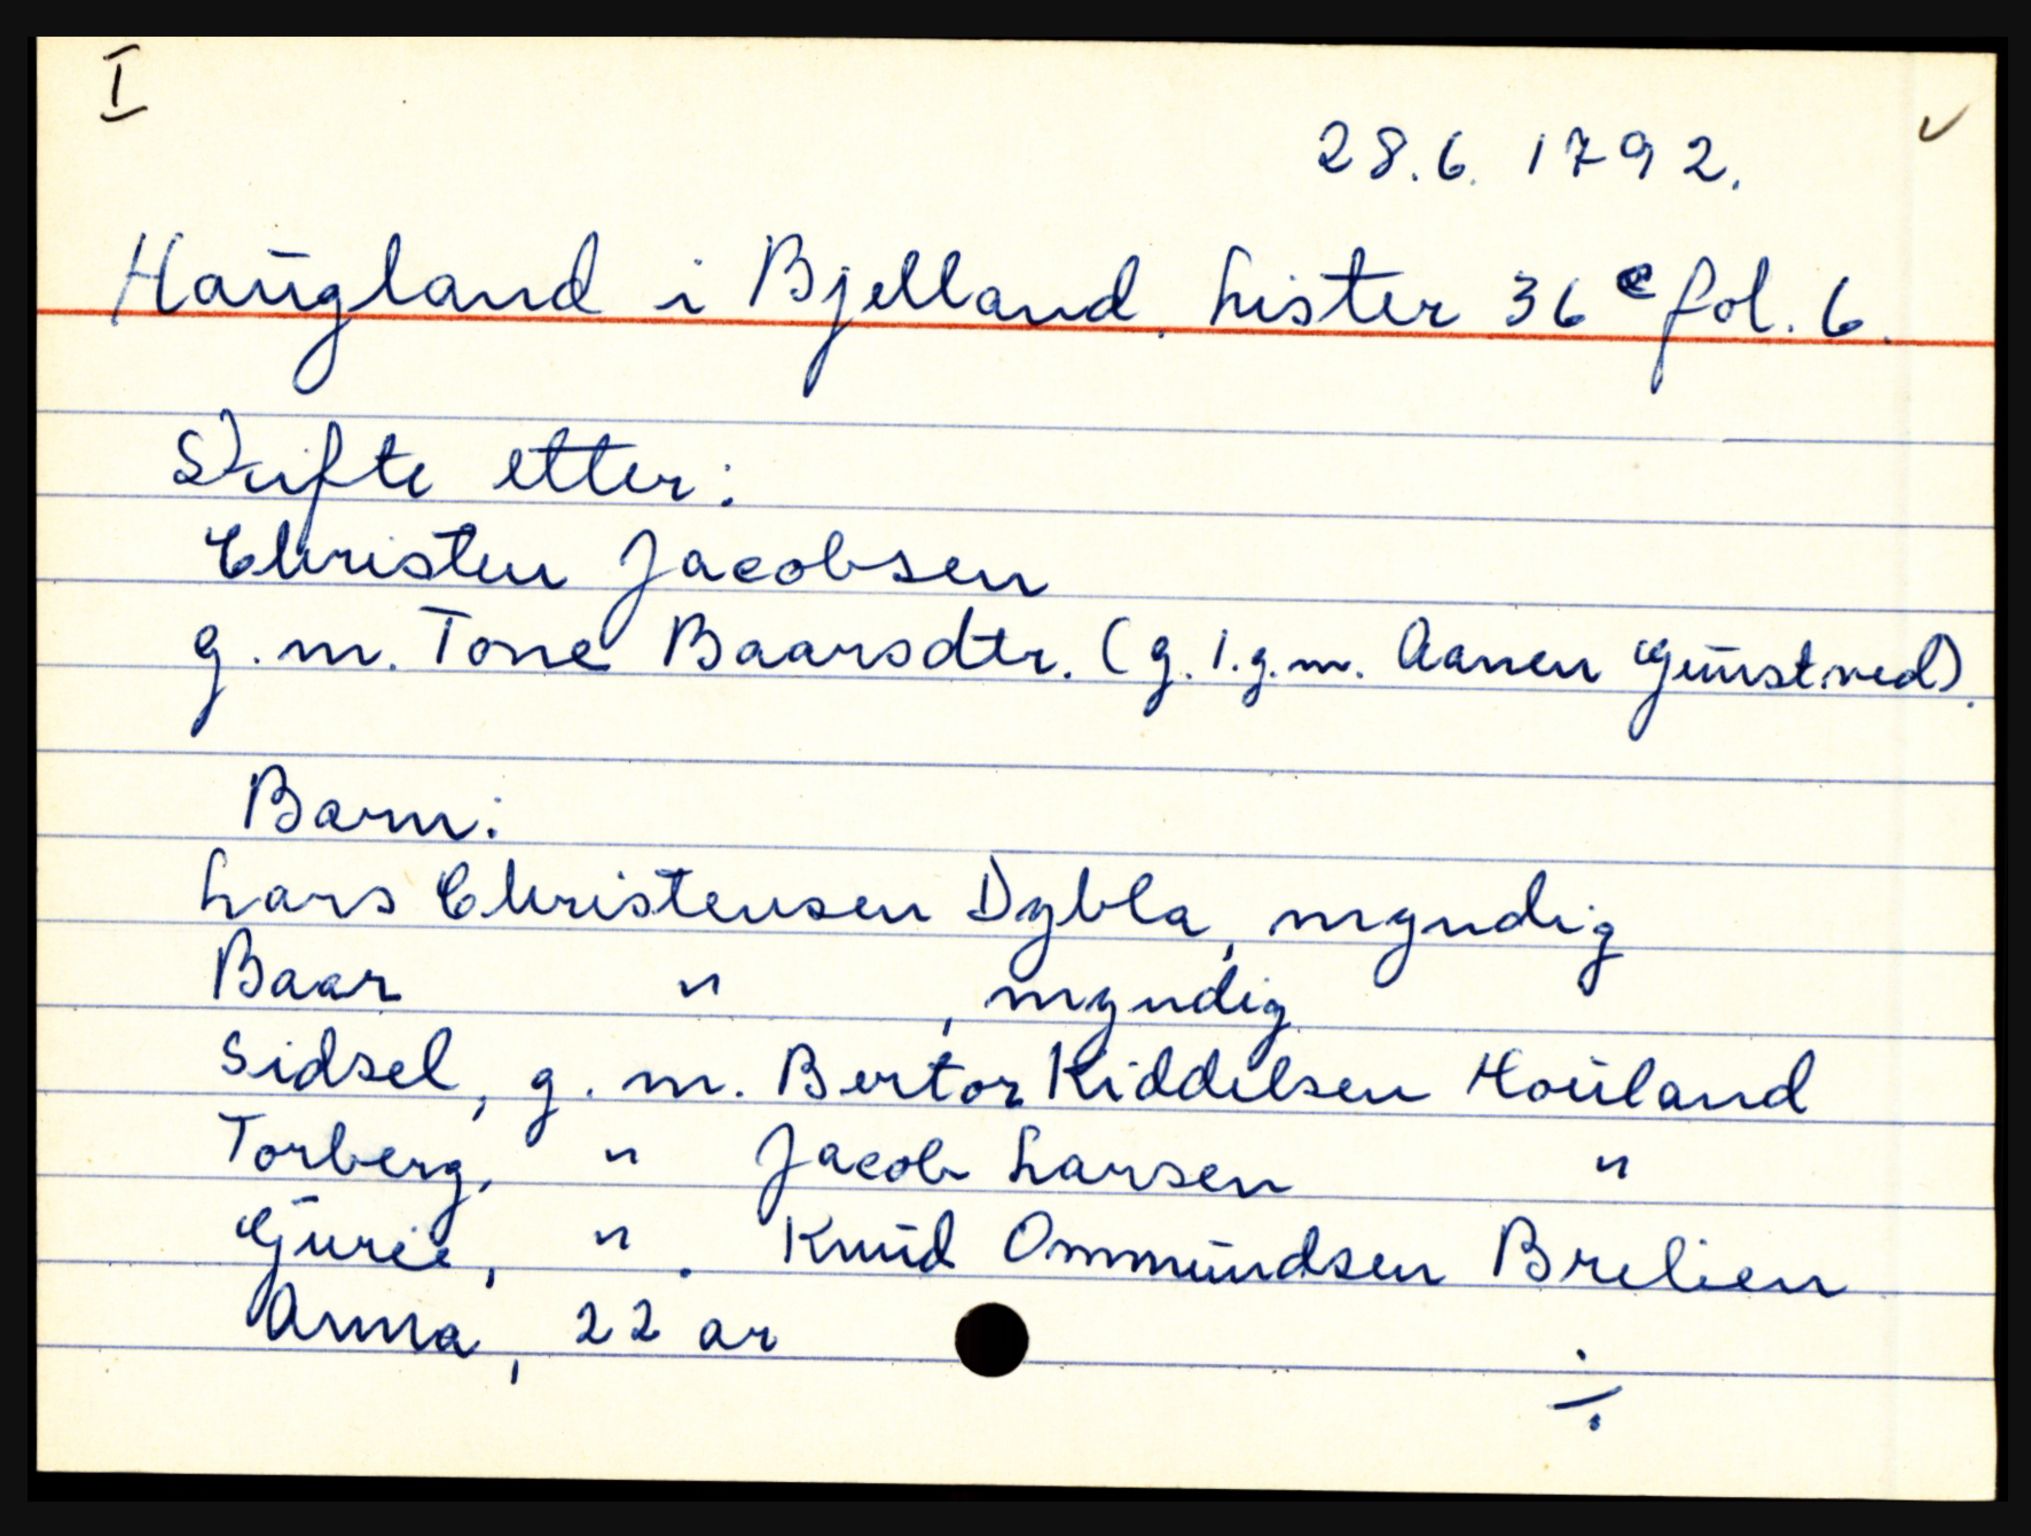 I
28.6. 1792.
Haugland i Bjelland. Lister 36 e fol. 6.
Skifte etter:
Christen Jacobsen
g.m. Tone Baarsdtr. (g. 1.g.m. Aanen Gunstved).
Barn:
Lars Christensen Dybla, myndig
Baar " , myndig
Sidsel, g. m. Bertor Kiddelsen Houland
Torberg, " Jacob Larsen "
Gurie, " . Knud Ommundsen Brelien
Anna, 22 ar